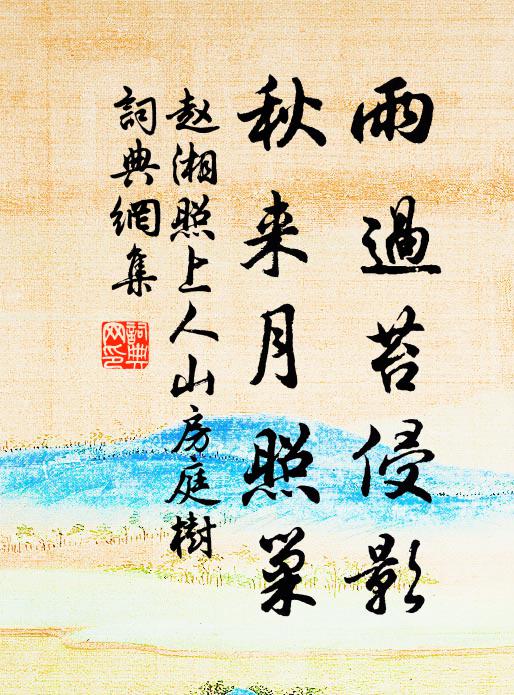 雨過苔侵影
秋来月照巢
赵湘照上人山房庭樹
詞典網集
詞典网印